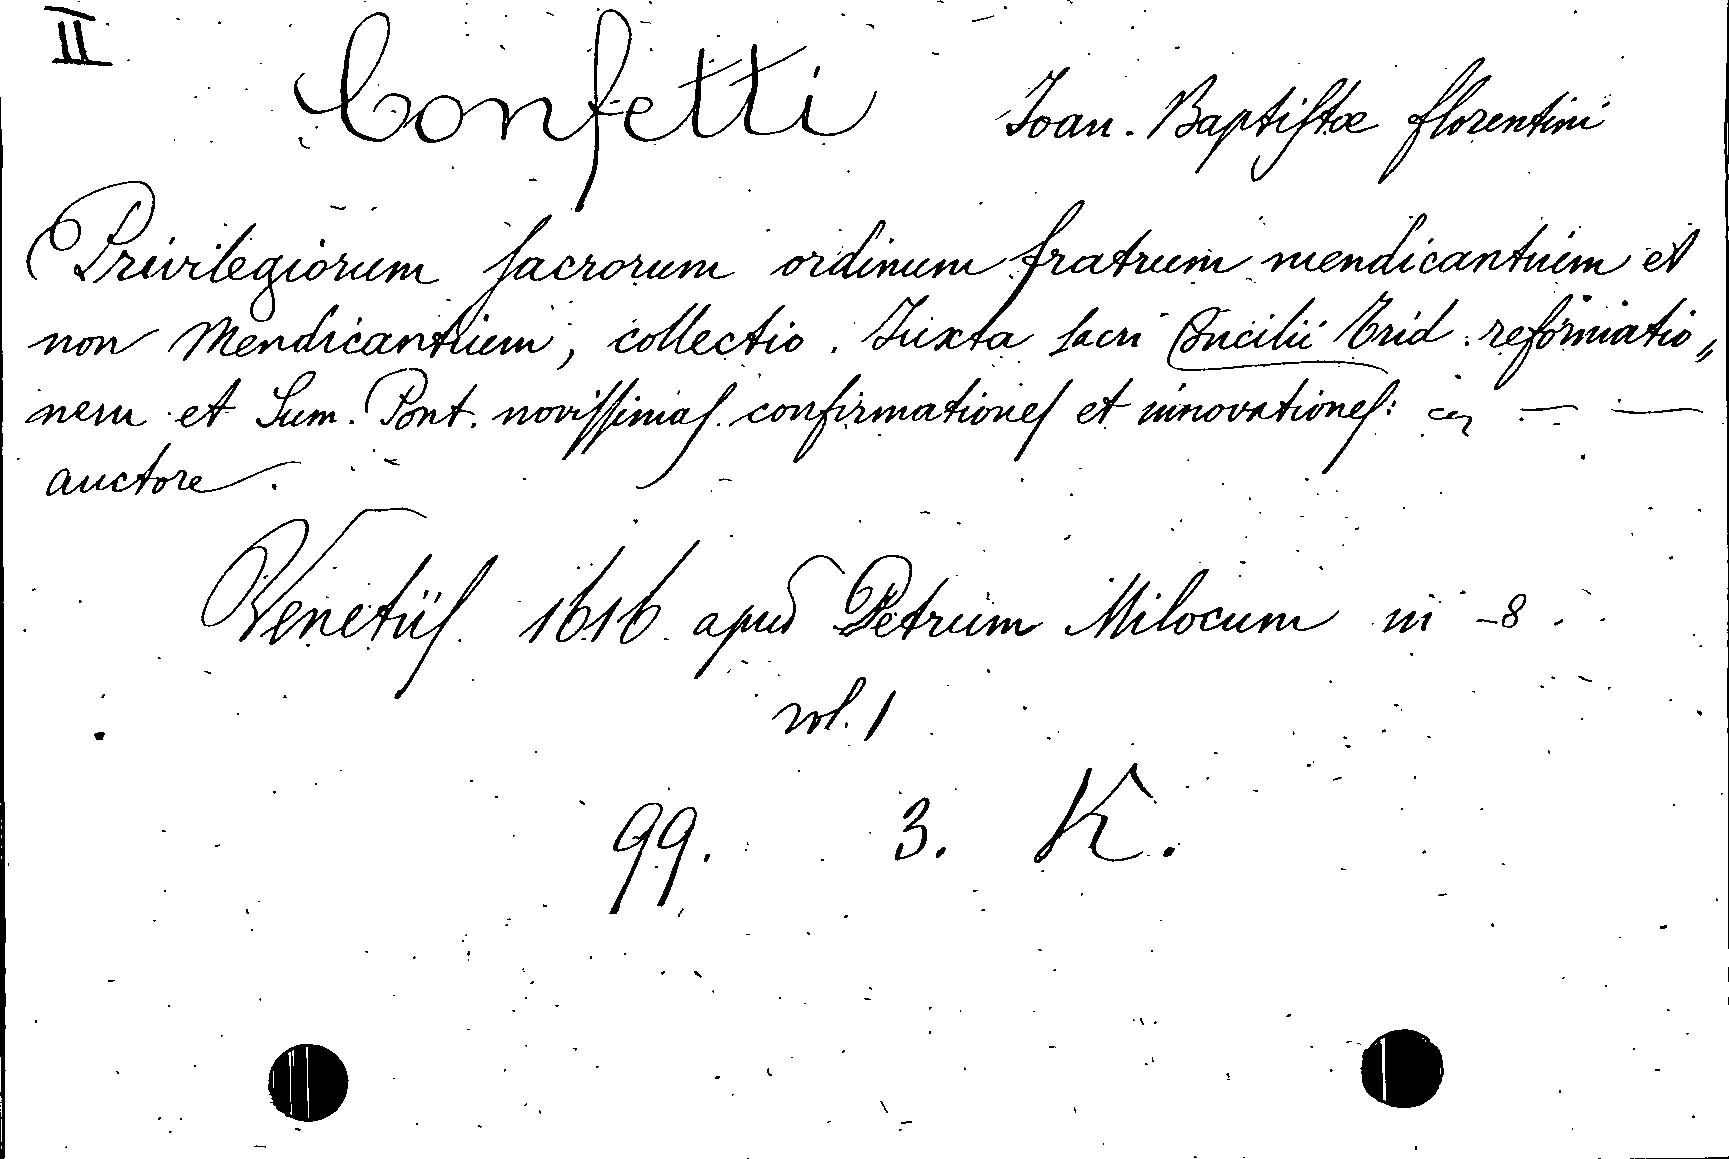 II
Confetti Joan. Baptiſtæ florentini
Privilegiorum ſacrorum ordinum fratrum mendicantium et
non Mendicantium, collectio. Juxta ſacri Concilii Trid. reformatio„
nem et Sum. Pont. noviſſimaſ confirmationeſ et innovationeſ:
auctore.
Venetiiſ 1616 apud Petrum Milocum in -8.
vol. 1
99. 3. K.